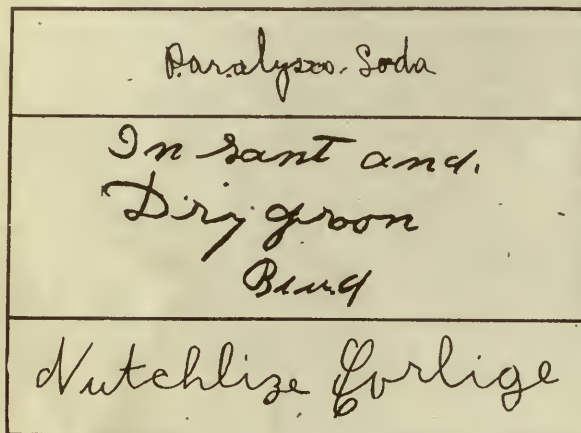 Paralyxo. Soda
In sant and.
Dry groon
Bund
Nutchlize Corlige